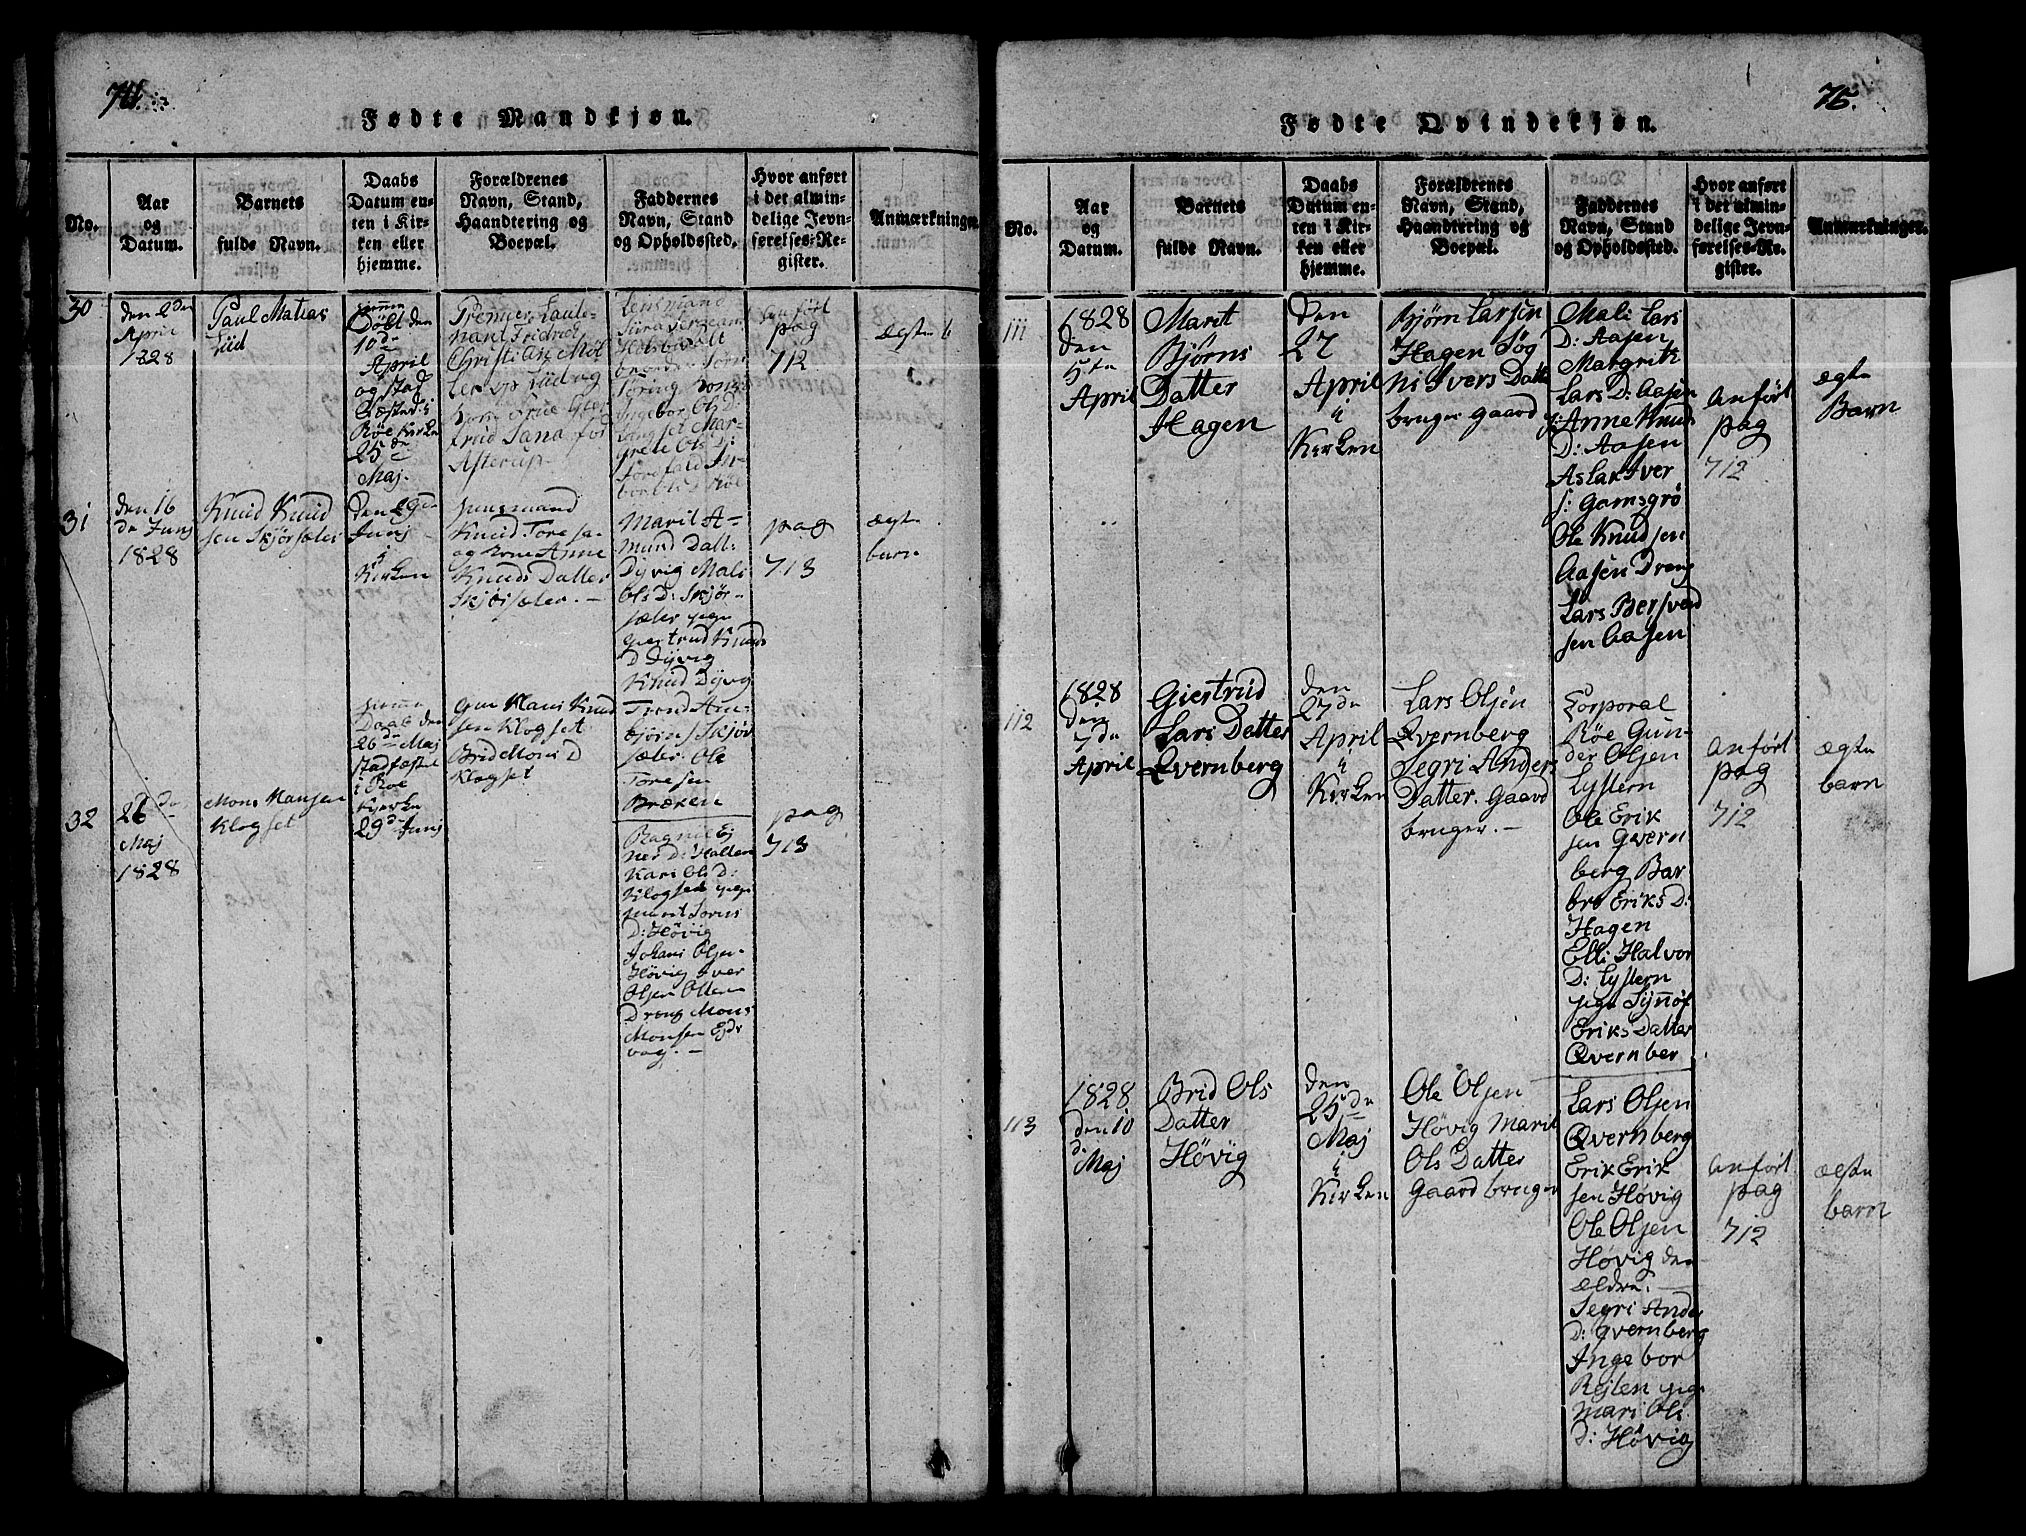 74.
Fødte Mandkjøn.
No.
Aar
og
Datum.
Barnets
fulde Navn.
Daabs
Datum en-
ten i Kir-
ken eller
hjemme.
Forældrenes
Navn, Stand,
Haandtering og
Boepæl.
Faddernes
Navn, Stand
og Opholdssted.
Hvor anført
i det almin-
delige Jevn-
førelses-Re-
gister.
Anmærkninger.
30
den 2den
April
1828
Paul Matias
Lüd
Døbt den
10de
April
og stad
fæsted i
Røe Kirke
25de
Maj.
Premier Laute-
nant Fridrick
Christian Møl
ler
Kone Frue
trud Jana fød
Asterup.
Lensmand
Ingebor Ols D
Mar-
grete Ols D:
anført
pag
712
ægte
31
den 16
de Junj
1828
Knud Knud
sen Skjørsæter
den 29de
Junj
i
Kirken
Knud Tore sen
og Kone Anne
Knuds Datter
Skjørsæter. —
Marit A-
mund Datt:
Dyvig Mali
Ols D: Skjør-
sæter pige
Giertrud Knuds
D Dyvig
Knud Dyvig
Trond Am-
bjørns Skjør
sæter. Ole
Tore sen
Bræken
pag
713
ægte
barn
32
26de
Maj
1828
Mons Hansen
Klogset
hjemme
Daab den
26de Maj
stadfæstet
i Røe
Kjerke
29de Junj
Hans Knud
sen Klogset
Brid Mons D
Klogset
Ragnil Ej
ner D: Hatten
Kari Ols D:
Klogset pige
D: Høvig
Johans Olsen
Høvig Iver
Olsen Otten
Dreng Mons
Monsen Ejds
vag. —
pag
713
75.
Fødte Qvindekjøn.
No.
Aar
og
Datum.
Barnets
fulde Navn.
Daabs
Datum en-
ten i Kir-
ken eller
hjemme.
Forældrenes
Navn, Stand,
Haandtering og
Boepæl.
Faddernes
Navn, Stand
og Opholdssted.
Hvor anført
i det almin-
delige Jevn-
førelses-Re-
gister.
Anmærkninger.
111
1828
den
5te
April
Marit
Bjørns
Datter
Hagen
Den
27
April
i
Kirken
Bjørn Larsen
Hagen Søg
ni Ivers Datte
bruger gaard
Mali Lars
D: Aasen
Margrith
Lars D: Aasen
p: Anne Knud
D: Aasen
Aslak Iver
s: Gamsgrø
Ole Knudsen
Aasen Dreng
Lars Bersvend
sen Aasen
Anført
pag
712
ægte
Barn
112
1828
den
7de
April
Giestrud
Lars Datter
Qvernberg
den
27de
April
i
Kirken
Lars Olsen
Qvernberg
Segri Anders
Datter. Gaard
bruger. —
Corporal
Røe Gun-
der Olsen
Lystern
Ole Erik
sen Qvern
berg Bar
bro Eriks D:
Hagen
Elli Halvor
D: Lystern
pige Synnøf
Eriks Datter
Qvernber
Anført
pag
712
ægte
barn
113
1828
den 10
d:
Maj
Brid Ols
Datter
Høvig
den
25de
Maj
i
Kirken
Ole Olsen
Høvig Marit
Ols Datter
Gaard bruger
Lars Olsen
Qvernberg
Erik Erik
sen Høvig
Ole Olsen
Høvig den
ældre. —
Segri Ander
D: Qvernberg
Ingebor
Rejten pige
Mari Ols
D: Høvig
Anført
pag
712
ægte
barn